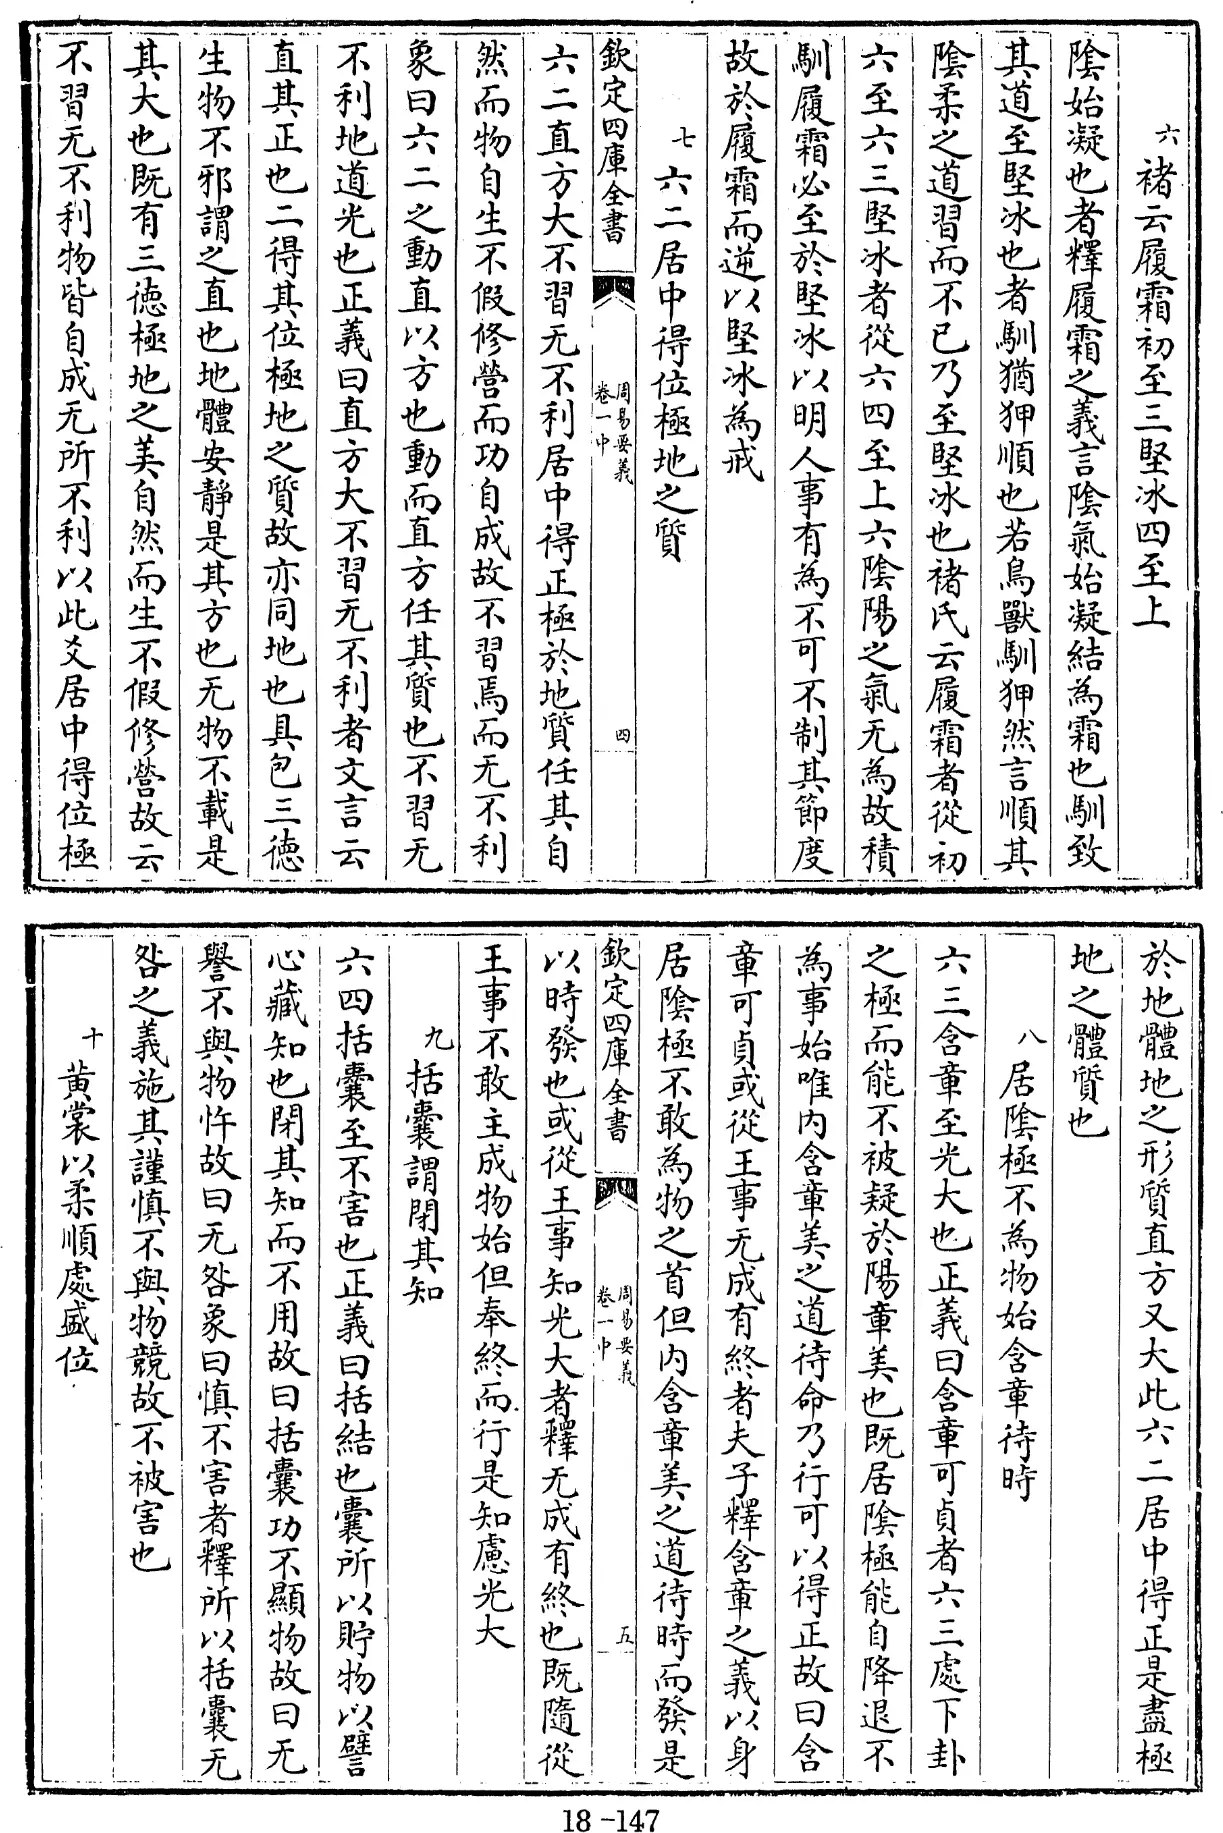 六褚云履霜初至三堅冰四至上
陰始凝也者釋履霜之義言陰氣始凝結為霜也馴致
其道至堅冰也者馴猶狎順也若鳥獸馴狎然言順其
陰柔之道習而不已乃至堅冰也褚氏云履霜者從初
六至六三堅冰者從六四至上六陰陽之氣无為故積
馴履霜必至於堅冰以明人事有為不可不制其節度
故於履霜而逆以堅冰為戒
七六二居中得位極地之質
欽定四庫全書
周易要義
卷一中
四
六二直方大不習无不利居中得正極於地質任其自
然而物自生不假修營而功自成故不習焉而无不利
象曰六二之動直以方也動而直方任其質也不習无
不利地道光也正義曰直方大不習无不利者文言云
直其正也二得其位極地之質故亦同地也具包三德
生物不邪謂之直也地體安靜是其方也无物不載是
其大也既有三德極地之美自然而生不假修營故云
不習无不利物皆自成无所不利以此爻居中得位極
於地體地之形質直方又大此六二居中得正是盡極
地之體質也
八居陰極不為物始含章待時
六三含章至光大也正義曰含章可貞者六三處下卦
之極而能不被疑於陽章美也既居陰極能自降退不
為事始唯內含章美之道待命乃行可以得正故曰含
章可貞或從王事无成有終者夫子釋含章之義以身
居陰極不敢為物之首但內含章美之道待時而發是
欽定四庫全書
周易要義
卷一中
五
以時發也或從王事知光大者釋无成有終也既隨從
王事不敢主成物始但奉終而行是知慮光大
九括囊謂閉其知
六四括囊至不害也正義曰括結也囊所以貯物以譬
心藏知也閉其知而不用故曰括囊功不顯物故曰无
譽不與物忤故曰无咎象曰慎不害者釋所以括囊无
咎之義施其謹慎不與物競故不被害也
十黃裳以柔順處盛位
18-147